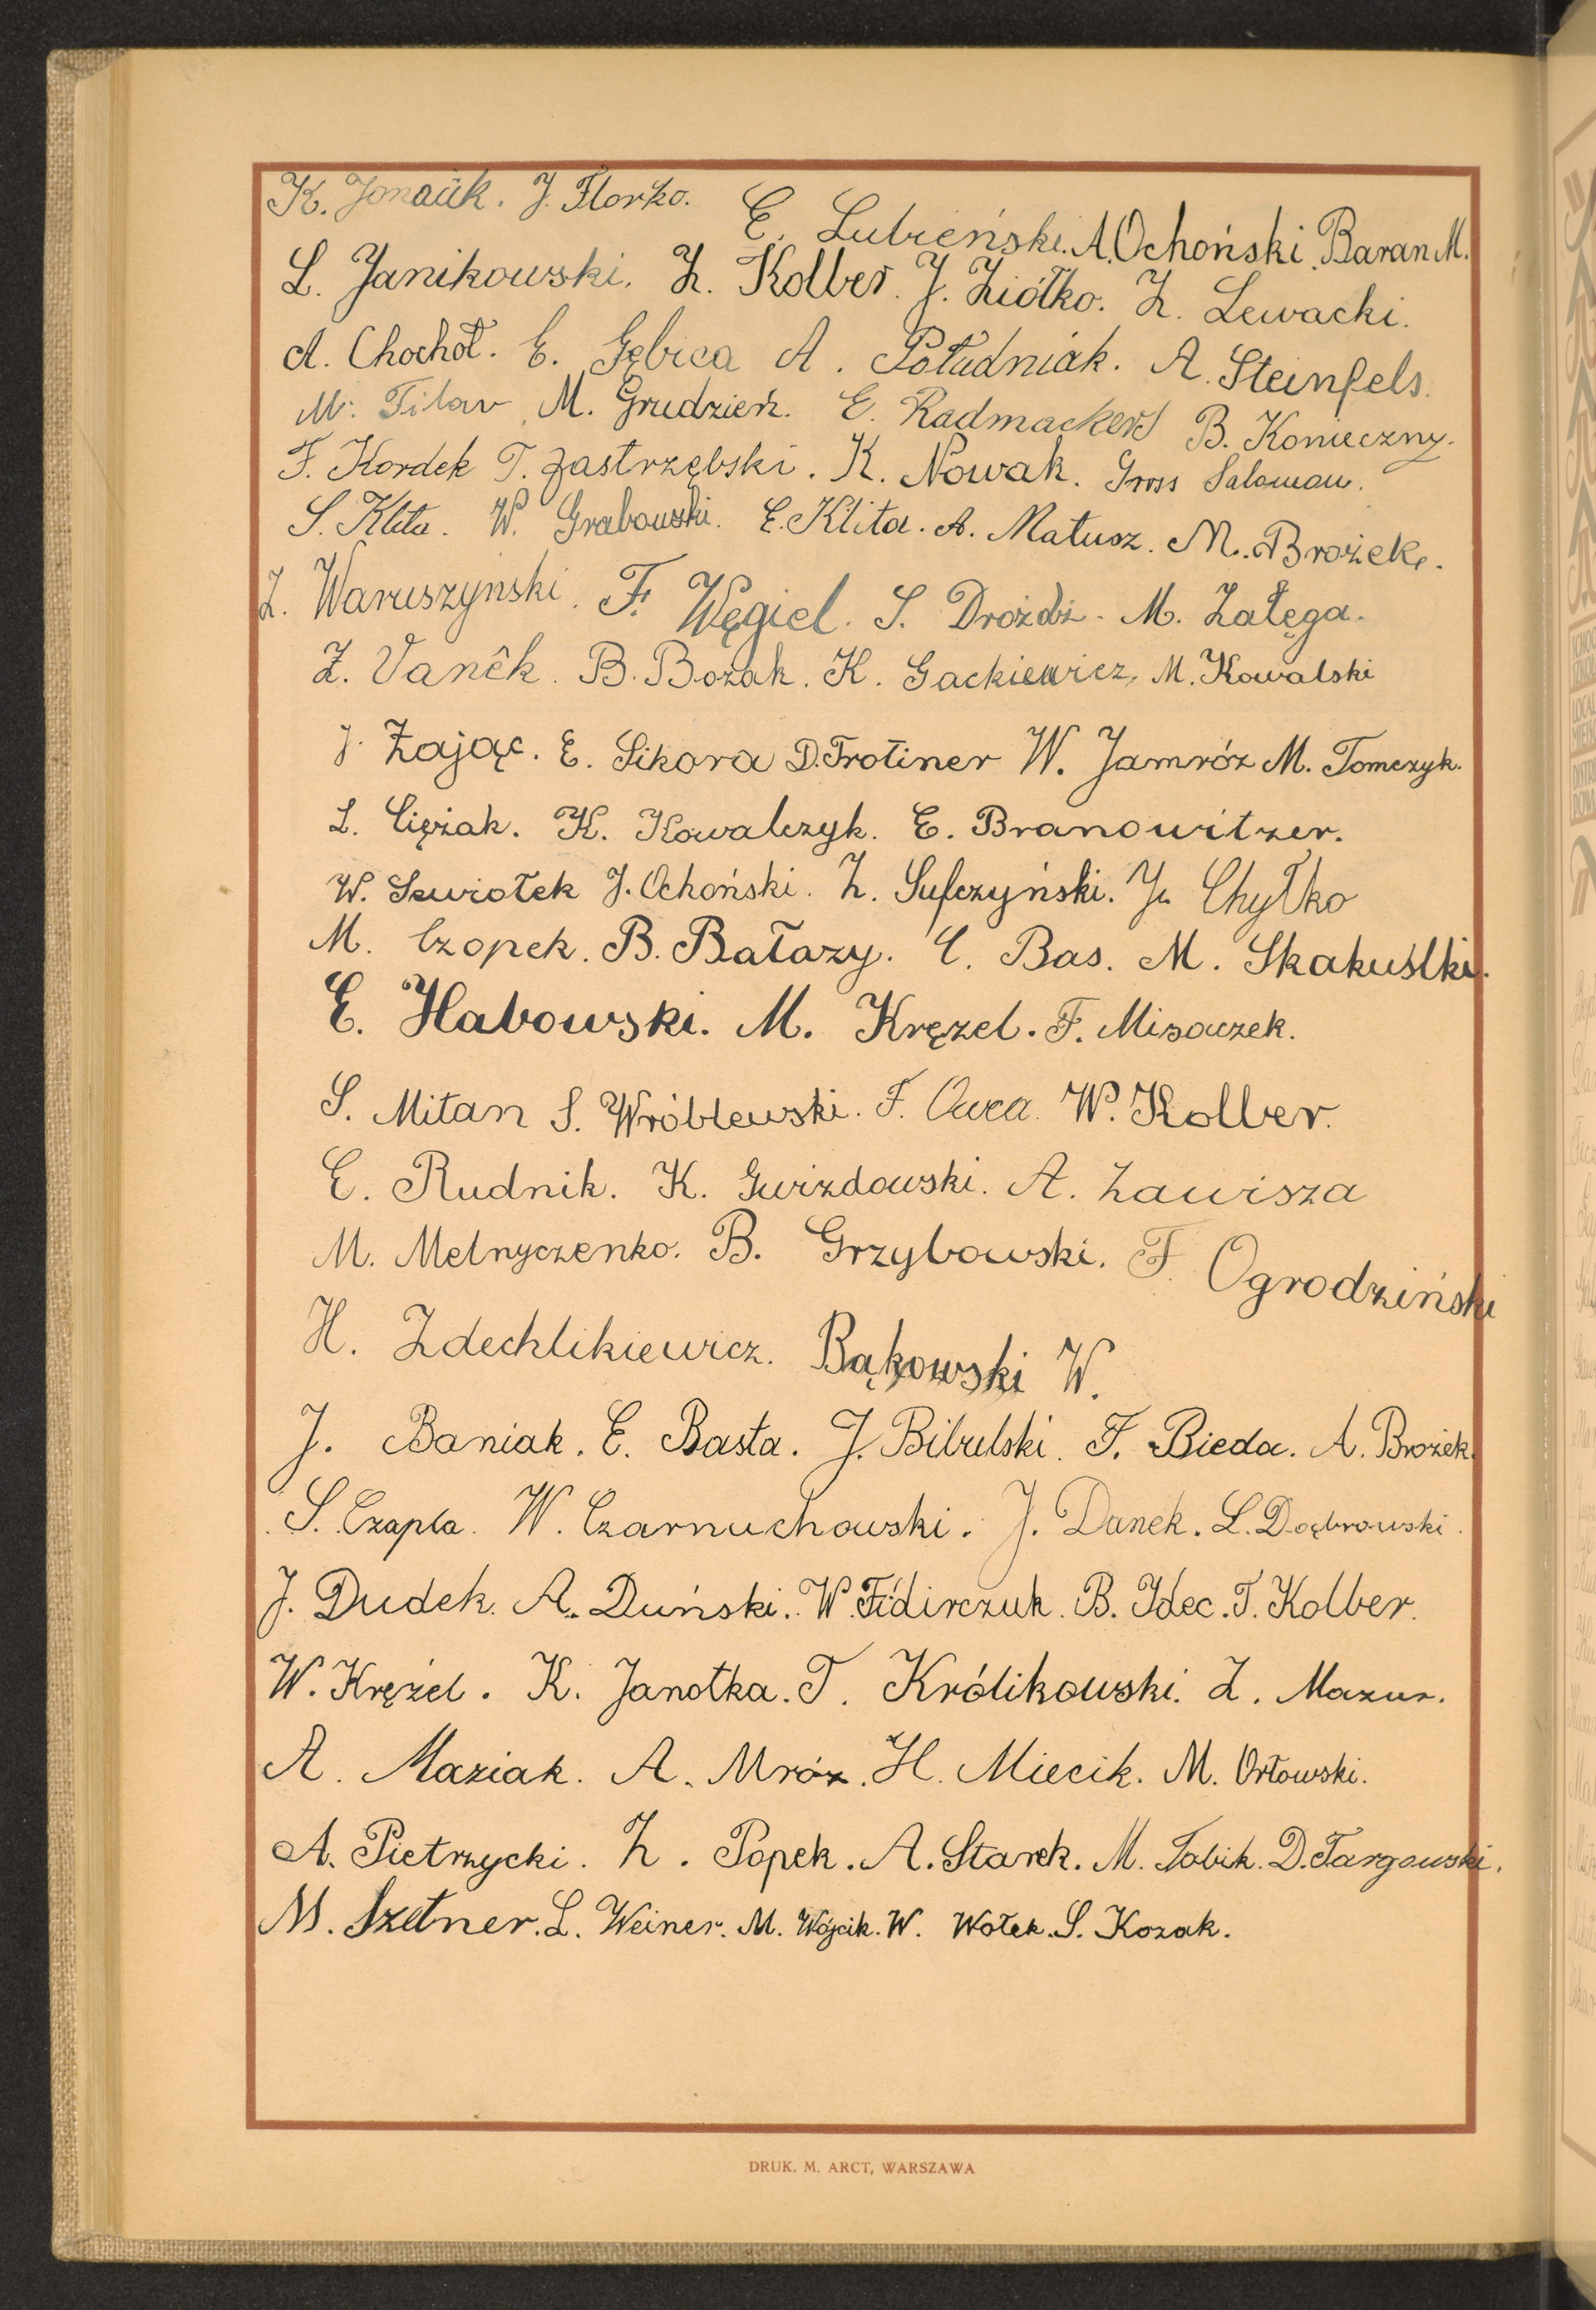 K. Jonaük. J. Florko. E. Lubieński. A. Ochoński. Baran M.
L. Janikowski. Z. Kolber. J. Ziółko. Z. Lewacki.
A. Chochoł. E. Gębica A. Południak. A. Steinfels.
M. Filav. M. Grudzień. E. Radmackers B. Konieczny.
F. Kordek T. Jastrzębski. K. Nowak. Gross Salomon.
S. Klita. W. Grabowski. E. Klita. A. Matusz. M. Brożek.
Z. Waruszynski. F. Węgiel. S. Drożdż. M. Załęga.
Z. Vanêk. B. Bożak. K. Gackiewicz, M. Kowalski
J. Zając. E. Sikora D. Trotiner W. Jamróz M. Tomczyk.
L. Ciężak. K. Kowalczyk. E. Branowitzer.
W. Szwiołek J. Ochoński. Z. Sufczyński. J. Chyłko
M. Czopek. B. Bałazy. C. Bas. M. Skakuślki.
E. Habowski. M. Krężel. F. Misaczek.
S. Mitan S. Wróblewski. F. Owca. W. Kolber.
E. Rudnik. K. Gwizdowski. A. Zawisza
M. Melnyczenko. B. Grzybowski. F. Ogrodziński
H. Zdechlikiewicz. Bąkowski W.
J. Baniak. E. Basta. J. Bibulski. F. Bieda. A. Brożek.
S. Czapla. W. Czarnuchowski. J. Danek. L. Dąbrowski.
J. Dudek. A. Duński. W. Fidirczuk. B. Idec. T. Kolber.
W. Krężel. K. Janotka. T. Królikowski. Z. Mazur.
A. Maziak. A. Mróz. H. Miecik. M. Orłowski.
A. Pietrzycki. Z. Popek. A. Starek. M. Tabik. D. Targowski.
M. Szetner. L. Weiner. M. Wójcik. W. Wołek. S. Kozak.
DRUK. M. ARCT, WARSZAWA